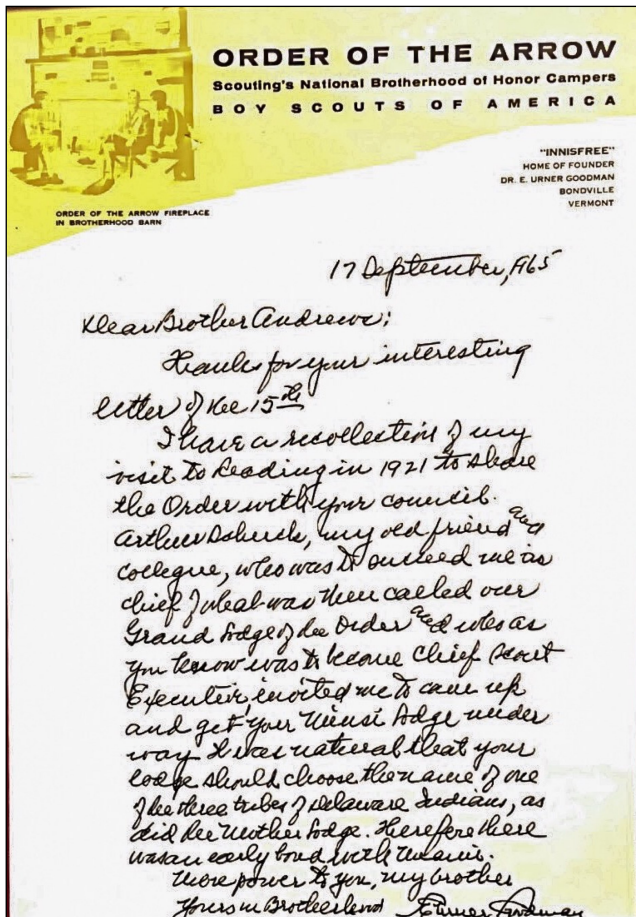 ORDER OF THE ARROW
Scouting's National Brotherhood of Honor Campers
BOY SCOUTS OF AMERICA
"INNISFREE"
HOME OF FOUNDER
DR. E. URNER GOODMAN
BONDVILLE
VERMONT
ORDER OF THE ARROW FIREPLACE
IN BROTHERHOOD BARN
17 September, 1965
Dear Brother Andrews:
Thanks for your interesting
letter of the 15th
I have a recollection of my
visit to Reading in 1921 to share
the Order with your council.
Arthur Schuck, my old friend and
collegue, who was to succeed me as
chief of what was then called our
Grand Lodge of the Order and who as
you know was to become Chief Scout
Executive, invited me to come up
and get your Minsi Lodge under
way. It was natural that your
lodge should choose the name of one
of the three tribes of Delaware Indians, as
did the Mother Lodge. Therefore there
was an early bond with Unami.
More power to you, my brother
Yours in Brotherhood E Urner Goodman